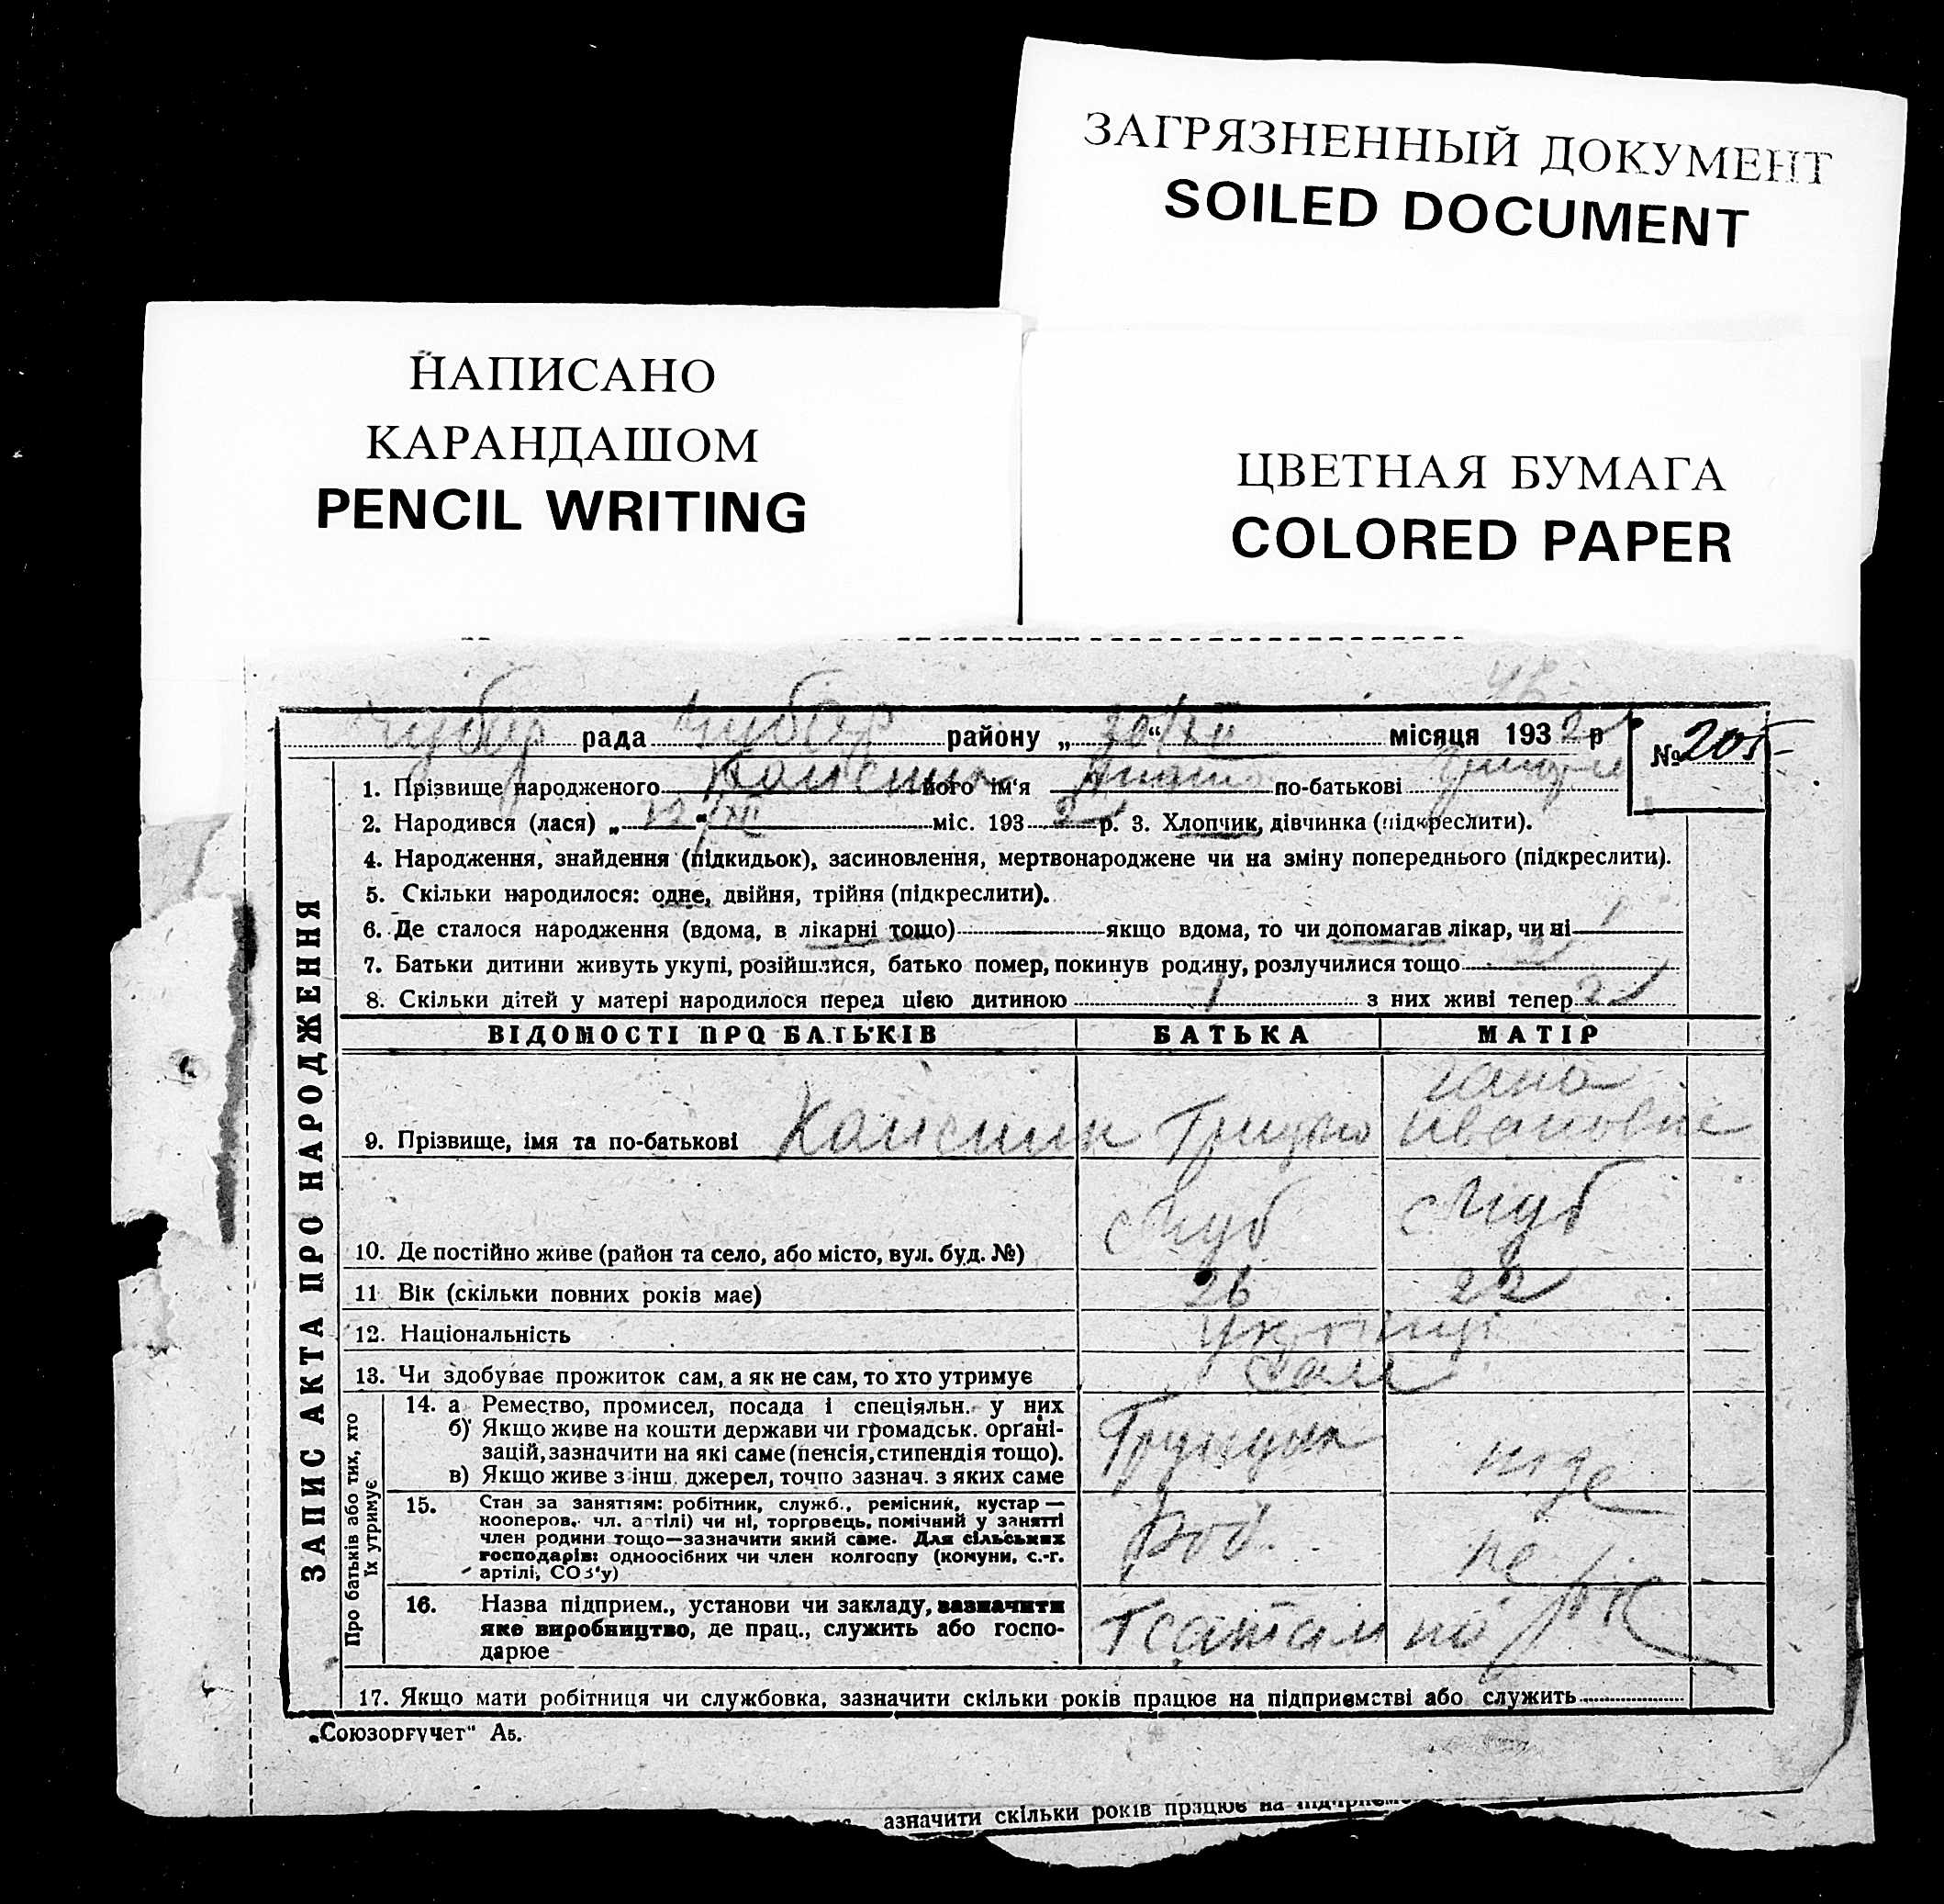 ЗАГРЯЗНЕННЫЙ ДОКУМЕНТ
SOILED DOCUMENT
НАПИСАНО
КАРАНДАШОМ
PENCIL WRITING
ЦВЕТНАЯ БУМАГА
COLORED PAPER
Чубар рада Чубар району „30/XII“ місяця 1932 р
№ 205
1. Прізвище народженого його ім'я по-батькові
2. Народився (лася) „12/XII“ міс. 1932 р. 3. Хлопчик, дівчинка (підкреслити).
4. Народження, знайдення (підкидьок), засиновлення, мертвонароджене чи на зміну попереднього (підкреслити).
5. Скільки народилося: одне, двійня, трійня (підкреслити).
6. Де сталося народження (вдома, в лікарні тощо) якщо вдома, то чи допомагав лікар, чи ні
7. Батьки дитини живуть укупі, розійшлися, батько помер, покинув родину, розлучилися тощо
8. Скільки дітей у матері народилося перед цією дитиною 1 з них живі тепер 2
ЗАПИС АКТА ПРО НАРОДЖЕННЯ
ВІДОМОСТІ ПРО БАТЬКІВ БАТЬКА МАТІР
9. Прізвище, імя та по-батькові Ивановна
10. Де постійно живе (район та село, або місто, вул. буд. №) с Чуб с Чуб
11 Вік (скільки повних років має) 26 22
12. Національність
13. Чи здобуває прожиток сам, а як не сам, то хто утримує сам
Про батьків або тих, хто
їх утримує
14. а Ремество, промисел, посада і спеціяльн. у них
б) Якщо живе на кошти держави чи громадськ. орґані-
зацій, зазначити на які саме (пенсія, стипендія тощо).
в) Якщо живе з інш. джерел, точно зазнач. з яких саме
нiде
15. Стан за заняттям: робітник, служб., ремісник, кустар —
кооперов. чл. артілі) чи ні, торговець, помічний у занятті
член родини тощо—зазначити який саме. Для сільських
господарів: одноосібних чи член колгоспу (комуни, с.-г.
артілі, СОЗ'у)
Роб. не
16. Назва підприєм., установи чи закладу, зазначити
яке виробництво, де прац., служить або госпо-
дарює
17. Якщо мати робітниця чи службовка, зазначити скільки років працює на підприємстві або служить
„Союзоргучет“ А5.
азначити скільки років працює на підприємс